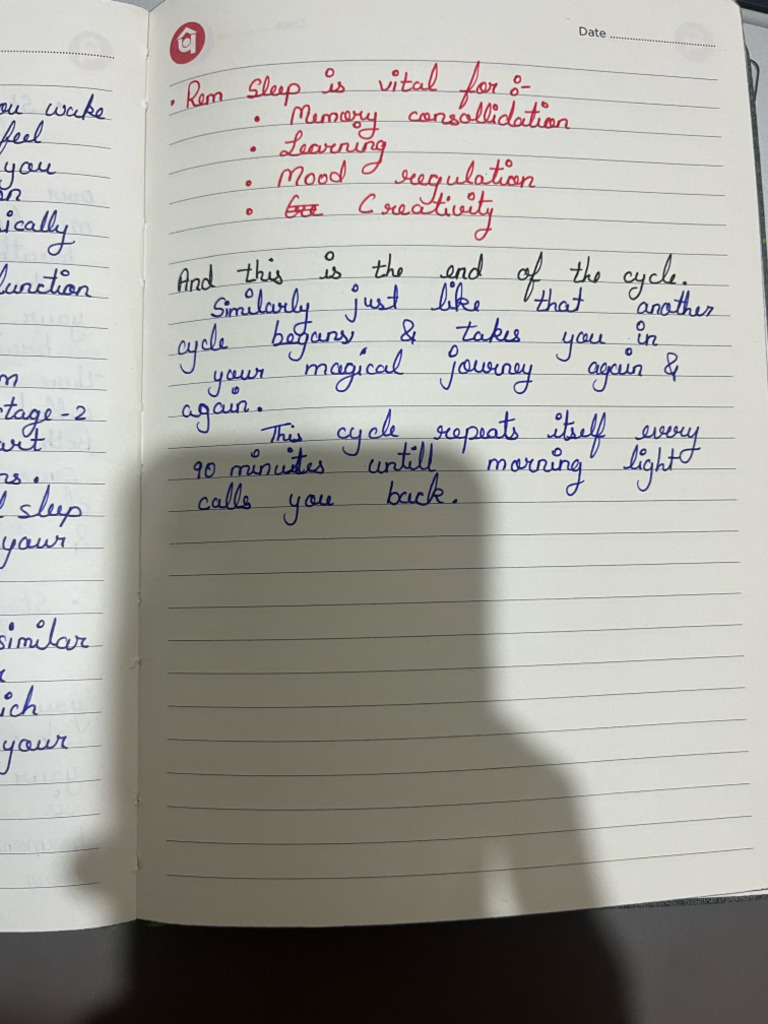 ou wake
feel
you
n
ically
function
m
tage - 2
art
ns.
l sleep
your
similar
ich
your
Date
• Rem Sleep is vital for :-
• Memory consollidation
• Learning
• Mood regulation
• Creativity
And this is the end of the cycle.
Similarly just like that another
cycle begans & takes you in
your magical journey again &
again.
This cycle repeats itself every
90 minuites untill morning light
calls you back.